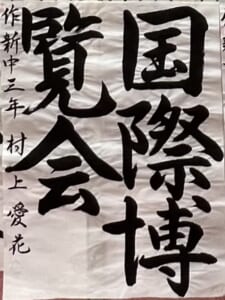 国際博
覧会
作新中三年 村上愛花